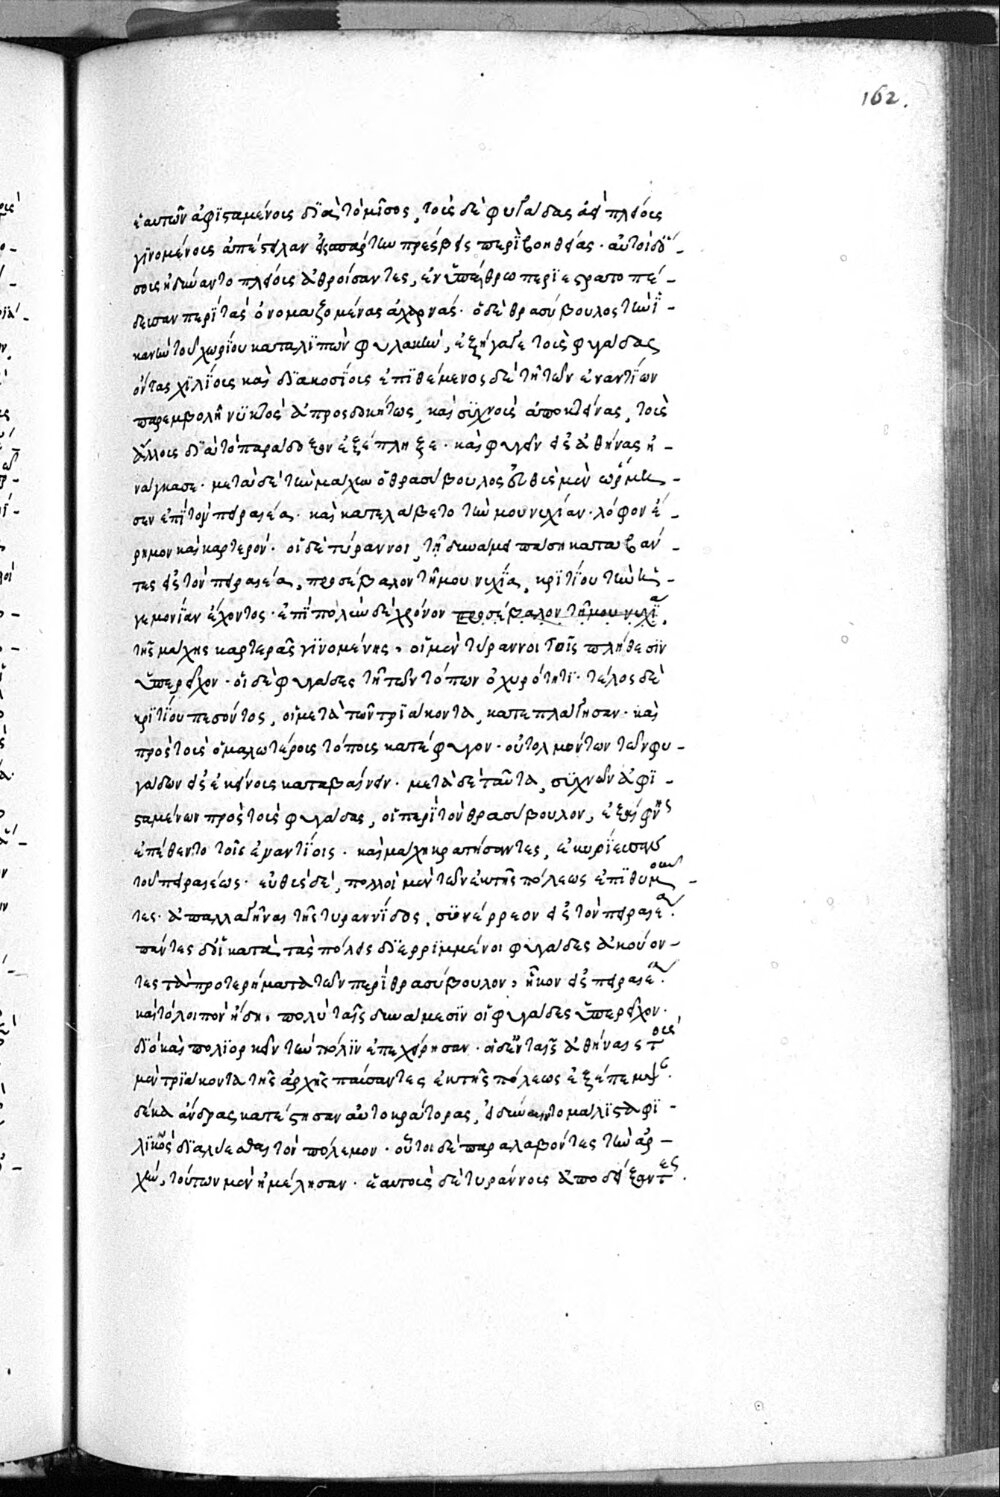 162.
ἑαυτῶν ἀφϊσταμένοις δϊὰ τὸ μῖσος, τοὺς δὲ φυγάδας ἀεὶ πλείους
γϊνομένους ἀπέστειλαν εἰς σπάρτην πρέσβεις περὶ βοηθείας. αὐτοὶ δ' ὅ-
σους ἠδύναντο πλείους ἀθροίσαντες, ἐν ὑπαίθρω περϊεστρατοπέ-
δευσαν περὶ τὰς ὀνομαζομένας ἀχαρνάς. ὁ δὲ θρασύβουλος τὴν ἱ-
κανὴν τοῦ χωρίου καταλϊπὼν φυλακὴν, ἐξήγαγε τοὺς φυγάδας
ὄντας χϊλίους καὶ δϊακοσίους ἐπϊθέμενος δὲ τῆ τῶν ἐναντίων
παρεμβολῆ νϋκτὸς ἀπροσδοκήτως, καὶ σϋχνοὺς ἀποκτείνας, τοὺς
ἄλλους δϊὰ τὸ παράδοξον ἐξέπληξε. καὶ φυγεῖν εἰς ἀθήνας ἠ-
νάγκασε. μετὰ δὲ τὴν μάχην ὁ θρασύβουλος εὐθὺς μὲν ὥρμη-
σεν ἐπὶ τὸν πειραιέα. καὶ κατελάβετο τὴν μουνιχίαν. λόφον ἔ-
ρημον καὶ καρτερόν. οἱ δὲ τύραννοι, τῆ δυνάμει πάση καταβάν-
τες εἰς τὸν πειραιέα, προσέβαλον τῆ μουνιχία, κρϊτίου τὴν ἡ-
γεμονίαν ἔχοντος. ἐπὶ πολὺν δὲ χρόνον προσέβαλον τῆ μουνιχία,
τῆς μάχης καρτερᾶς γϊνομένης, οἱ μὲν τύραννοι τοῖς πλήθεσϊν
ὑπερεῖχον. οἱ δὲ φυγάδες τῆ τῶν τόπων ὀχυρότητι. τέλος δὲ
κρϊτίου πεσόντος, οἱ μετὰ τῶν τριάκοντα, κατεπλάγησαν. καὶ
πρὸς τοὺς ὁμαλωτέρους τόπους κατέφυγον. οὐ τολμόντων τῶν φυ-
γάδων εἰς ἐκείνους καταβαίνειν. μετὰ δὲ ταῦτα, σϋχνῶν ἀφϊ-
σταμένων πρὸς τοὺς φυγάδας, οἱ περὶ τὸν θρασύβουλον, ἐξαίφνης
ἐπέθεντο τοῖς ἐναντίοις. καὶ μάχη κρατήσαντες, ἐκυρίευσαν
τοῦ πειραιέως. εὐθὺς δὲ, πολλοὶ μὲν τῶν ἐκ τῆς πόλεως ἐπϊθυμοῦν-
τες ἀπαλλαγῆναι τῆς τυραννίδος, σϋνέρρεον εἰς τὸν πειραιέα.
πάντες δ' οἱ κατὰ τὰς πόλεις δϊερριμμένοι φυγάδες ἀκούον-
τες τὰ προτερήματα τῶν περὶ θρασύβουλον, ἧκον εἰς πειραιέα.
καὶ τὸ λοιπὸν ἤδη, πολὺ ταῖς δυνάμεσϊν οἱ φυγάδες ὑπερεῖχον.
δϊὸ καὶ πολϊορκεῖν τὴν πόλϊν ἐπεχείρησαν. οἱ δ' ἐν ταῖς ἀθήναις τοὺς
μὲν τριάκοντα τῆς ἀρχῆς παύσαντες ἐκ τῆς πόλεως ἐξέπεμψαν.
δέκα ἄνδρας κατέστησαν αὐτοκράτορας, εἰ δύναιντο μάλϊστα φϊ-
λϊκῶς δϊαλύεσθαι τὸν πόλεμον. οὗτοι δὲ παραλαβόντες τὴν ἀρ-
χὴν, τούτων μὲν ἠμέλησαν. ἑαυτοὺς δὲ τυράννους ἀποδείξαντες.